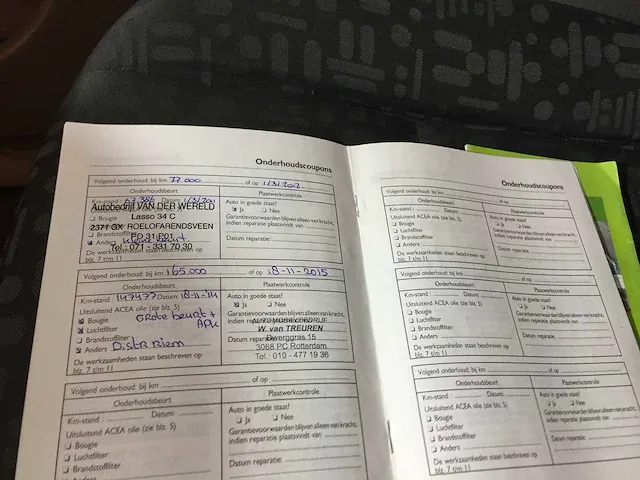 Onderhoudscoupons
Volgend onderhoud: bij km 77.000 of op 1/3/2012
Onderhoudsbeurt Plaatwerkcontrole
Km-stand : Datum: 1/3/2011 Auto in goede staat?
Autobedrijf VAN DER WERELD Ja Nee
Lasso 34 C Garantievoorwaarden blijven alleen van kracht,
Bougie indien reparatie plaatsvindt van
2371 GX ROELOFARENDSVEEN
Brandstoffilter PO 31 201 Datum reparatie:
Anders
Tel.: 071 - 331 70 30
De werkzaamheden staan beschreven op
blz. 7 t/m 11
Volgend onderhoud: bij km 165.000 of op 18-11-2015
Onderhoudsbeurt Plaatwerkcontrole
Km-stand : 147477 Datum: 18-11-'14 Auto in goede staat?
Uitsluitend ACEA olie (zie blz. 5) Ja Nee
Bougie Grote beurt + Garantievoorwaarden blijven alleen van kracht,
Luchtfilter APK indien reparatie plaatsvindt
Brandstoffilter W. van TREUREN
Anders Distr riem Dwerggras 15
De werkzaamheden staan beschreven op 3068 PC Rotterdam
blz. 7 t/m 11 Tel.: 010 - 477 19 36
Volgend onderhoud: bij km of op
Onderhoudsbeurt Plaatwerkcontrole
Km-stand : Datum: Auto in goede staat?
Uitsluitend ACEA olie (zie blz. 5) Ja Nee
Bougie Garantievoorwaarden blijven alleen van kracht,
Luchtfilter indien reparatie plaatsvindt van
Brandstoffilter Datum reparatie:
Anders
Onderhoudscoupons
Volgend onderhoud: bij km of op
Onderhoudsbeurt Plaatwerkcontrole
Km-stand : Datum: Auto in goede staat?
Uitsluitend ACEA olie (zie blz. 5) Ja Nee
Bougie Garantievoorwaarden blijven alleen van kracht,
Luchtfilter indien reparatie plaatsvindt van
Brandstoffilter
Anders Datum reparatie:
De werkzaamheden staan beschreven op
blz. 7 t/m 11
Volgend onderhoud: bij km of op
Onderhoudsbeurt Plaatwerkcontrole
Km-stand : Datum: Auto in goede staat?
Uitsluitend ACEA olie (zie blz. 5) Ja Nee
Bougie Garantievoorwaarden blijven alleen van kracht,
Luchtfilter indien reparatie plaatsvindt van
Brandstoffilter
Anders Datum reparatie:
De werkzaamheden staan beschreven op
blz. 7 t/m 11
Volgend onderhoud: bij km of op
Onderhoudsbeurt Plaatwerkcontrole
Km-stand : Datum: Auto in goede staat?
Uitsluitend ACEA olie (zie blz. 5) Ja Nee
Bougie Garantievoorwaarden blijven alleen van kracht,
Luchtfilter indien reparatie plaatsvindt van
Brandstoffilter
Anders Datum reparatie:
De werkzaamheden staan beschreven op
blz. 7 t/m 11